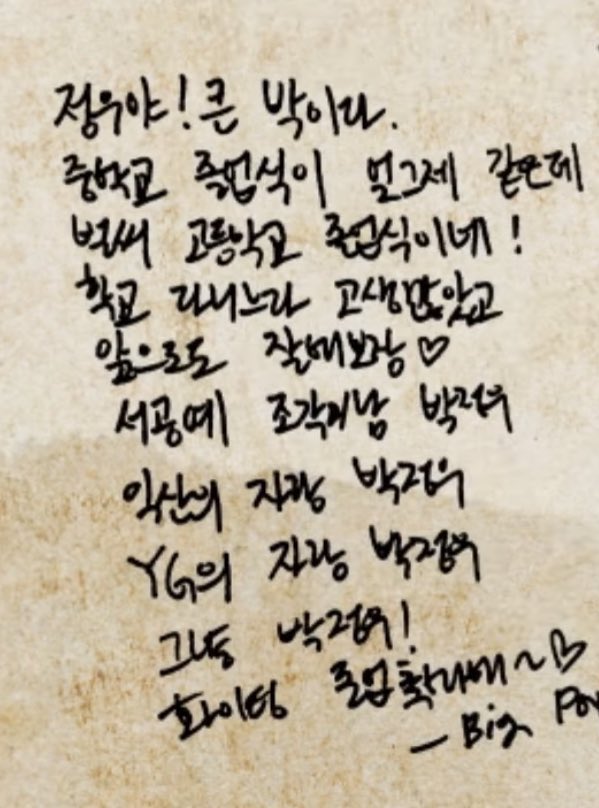 정우야! 큰 박이다.
중학교 졸업식이 엊그제 같은데
벌써 고등학교 졸업식이네!
학교 다니느라 고생많았고
앞으로도 잘해보장♡
서공예 조각미남 박정우
익산의 자랑 박정우
YG의 자랑 박정우
그냥 박정우!
화이팅 졸업축하해~♡
- Big